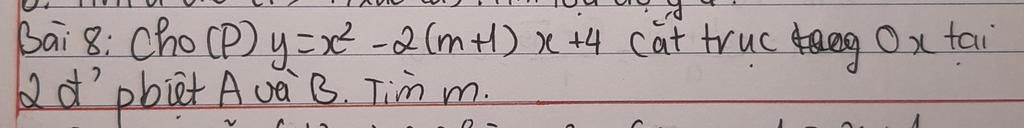 Bài 8: Cho (P) y = x² - 2(m+1) x + 4 cắt trục Ox tại
2 đ' pbiệt A và B. Tìm m.